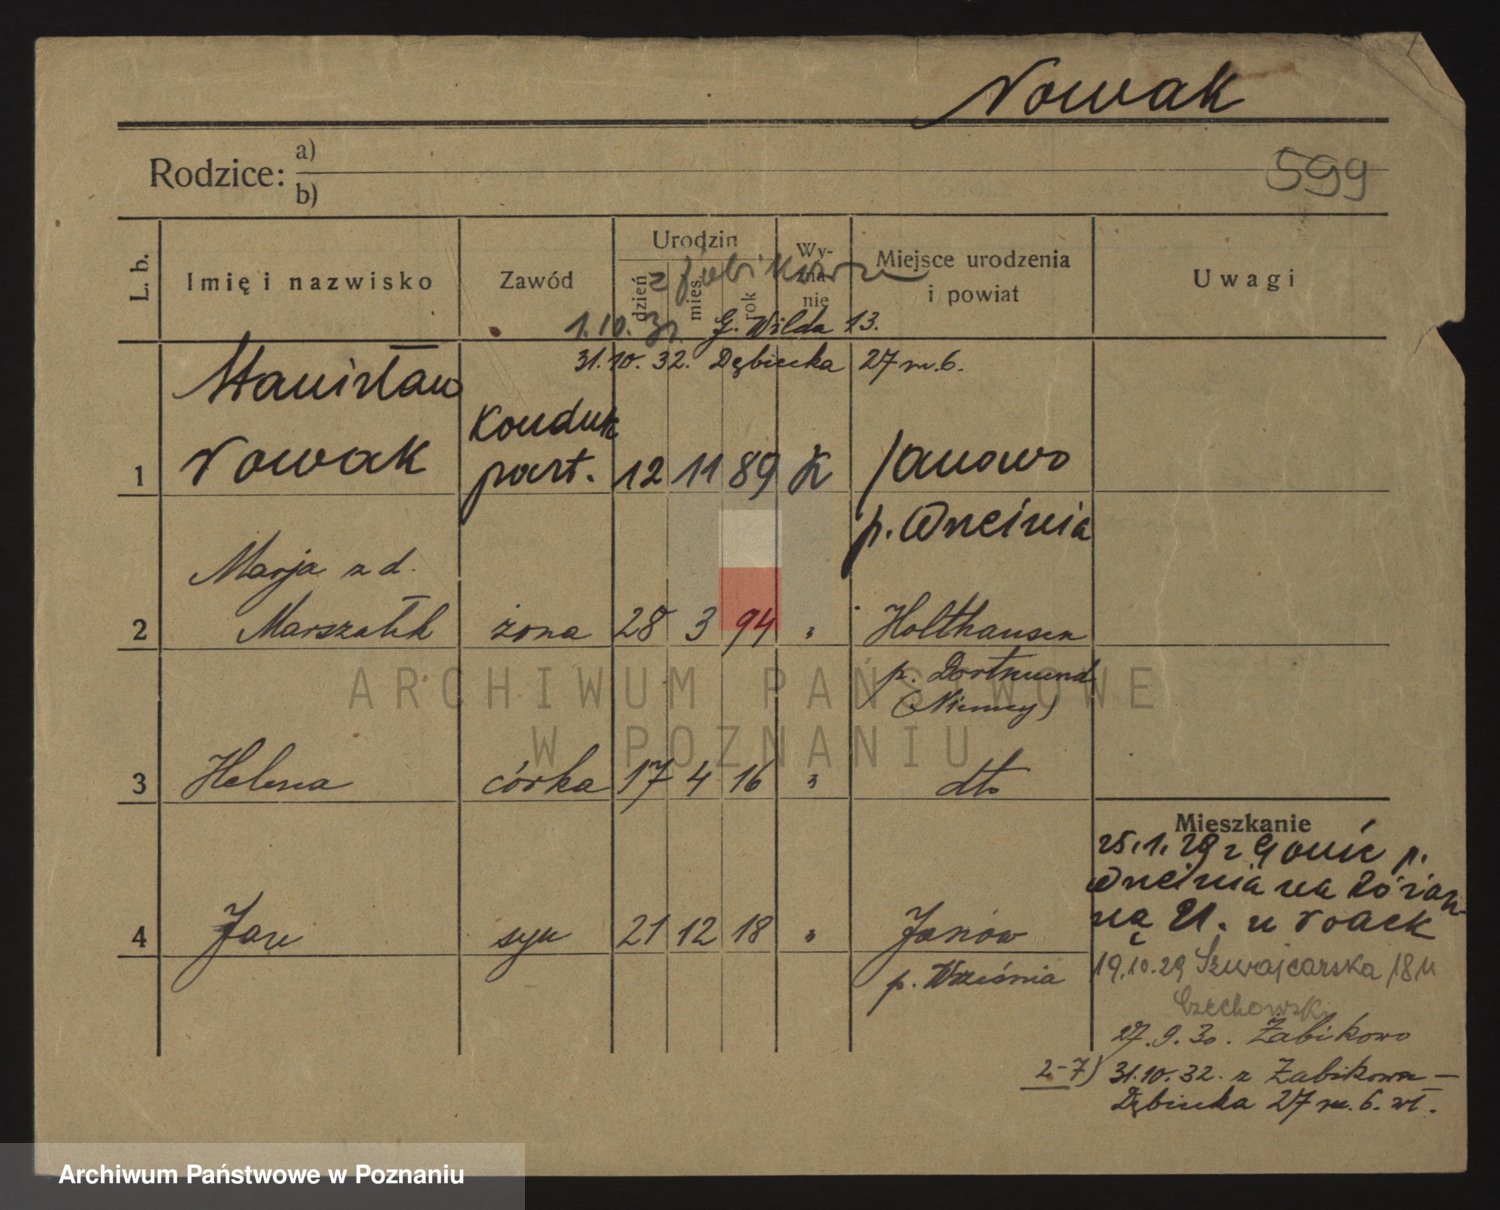 Nowak
Rodzice: a)
b)
599
L. b.
Imię i nazwisko
Zawód
Urodzin
dzień
mies.
rok
Wy-
zna-
nie
Miejsce urodzenia
i powiat
Uwagi
z Żabikowa
1.10.31. G. Wilda 13.
31.10.32. Dębiecka 27 m. 6.
1 Stanisław Nowak
Konduk
part.
12 11 89 K Janowo
p. Września
2 Marja z d.
Marszałek żona 28 3 94 " Holthausen
p. Dortmund
(Niemcy)
3 Helena córka 17 4 16 " dto
4 Jan syn 21 12 18 " Janów
p. Września
Mieszkanie
25.1.29 z
p.
Września na Różan-
ną 21. u Noack
19.10.29 Szwajcarska 18
Czechowski
27.9.30. Żabikowo
2-7) 31.10.32. z Żabikowa —
Dębiecka 27 m. 6. wł.
ARCHIWUM PAŃSTWOWE
W POZNANIU
Archiwum Państwowe w Poznaniu